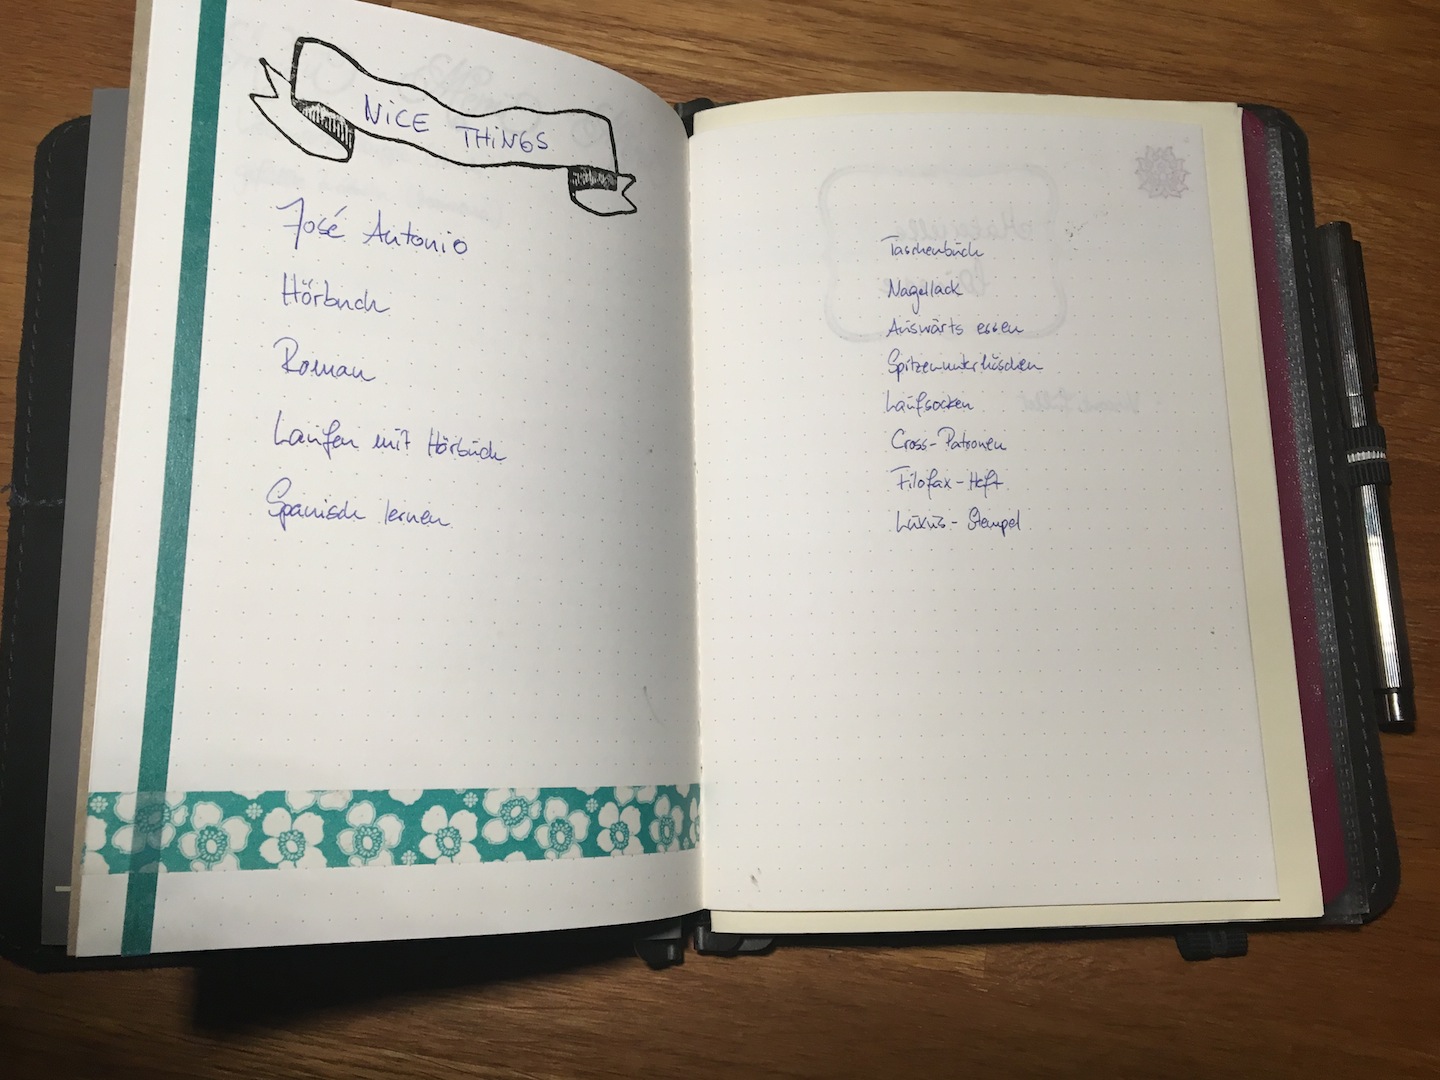 NiCE THiNGS
José Antonio
Hörbuch
Roman
Laufen mit Hörbuch
Spanisch lernen
Taschenbuch
Nagellack
Auswärts essen
Spitzenunterhöschen
Laufsocken
Cross-Patronen
Filofax-Heft
Luxus-Stempel